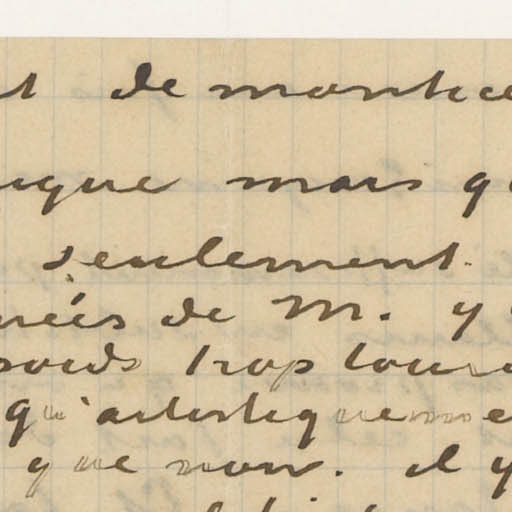 t de montice
ique mais q
seulement.
nées de M. y
poids trop lour
qu'artistiqueme
que non. il y